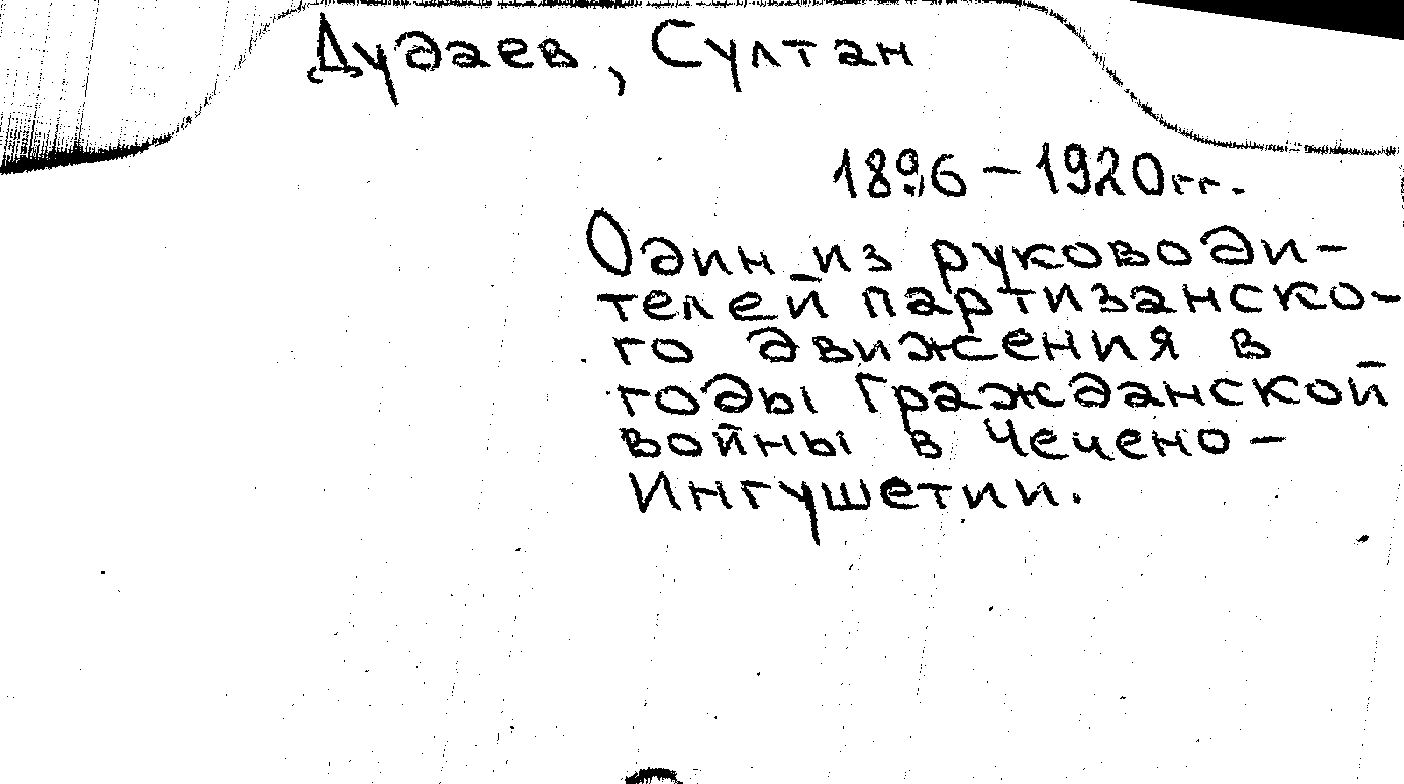 Дудаев, Султан
1896 – 1920 гг.
Один из руководи-
телей партизанско-
го движения в
годы Гражданской
войны в Чечено-
Ингушетии.